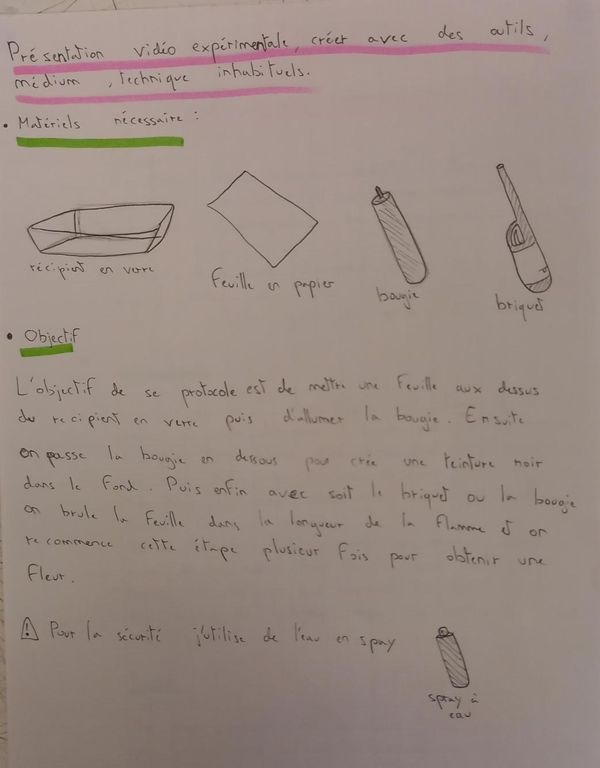 Présentation vidéo expérimentale, créer avec des outils,
médium, technique inhabituels.
• Matériels nécessaire :
récipient en verre
Feuille en papier
bougie
briquet
• Objectif
L'objectif de se protocole est de mettre une Feuille aux dessus
du recipient en verre puis d'allumer la bougie. Ensuite
on passe la bougie en dessous pour crée une teinture noir
dans le Fond. Puis enfin avec soit le briquet ou la bougie
on brule la Feuille dans la longueur de la Flamme et on
recommence cette étape plusieur Fois pour obtenir une
Fleur.
⚠ Pour la sécurité j'utilise de l'eau en spay
spray à
eau